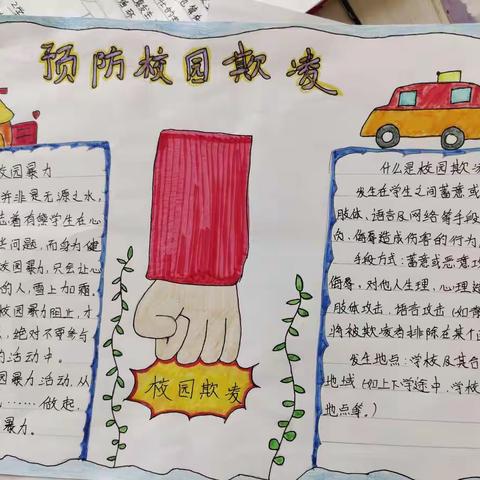 预防校园欺凌
园暴力
并非是无源之水,
着有些学生在心
些问题,而身为健
校园暴力,只会让心
的人,雪上加霜。
校园暴力阻止,才
,绝对不要参与
的活动中。
园暴力活动,从
……做起,
暴力。
校园欺凌
什么是校园欺凌
发生在学生之间蓄意或
肢体、语言及网络等手段
肉、侮辱造成伤害的行为
手段方式:蓄意或恶意
侮辱,对他人生理、心理
肢体攻击,语言攻击(如
将被欺凌者排除在某个
发生地点:学校及其合
地域(如上下学途中,学校
地点等。)